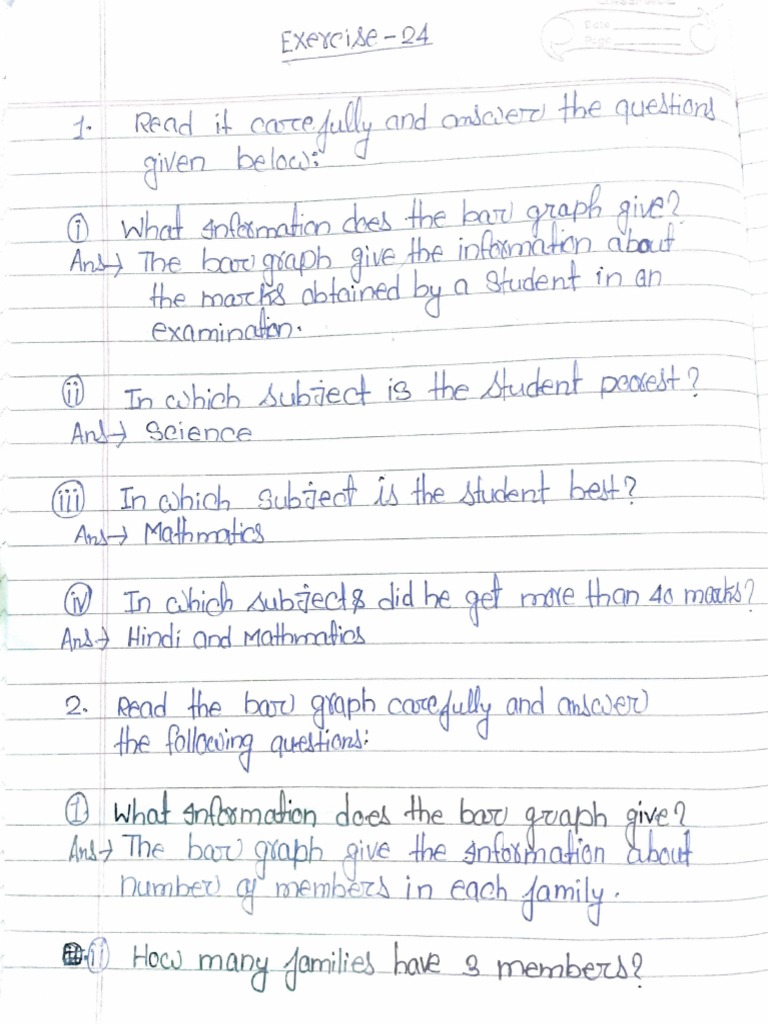 Date
Page
Exercise-24
1. Read it carefully and answer the questions
given below:
(i) What information does the bar graph give?
Ans→ The bar graph give the information about
the marks obtained by a student in an
examination.
(ii) In which subject is the student poorest?
Ans→ Science
(iii) In which subject is the student best?
Ans→ Mathmatics
(iv) In which subjects did he get more than 40 marks?
Ans→ Hindi and Mathmatics
2. Read the bar graph carefully and answer
the following questions:
(1) What information does the bar graph give?
Ans→ The bar graph give the information about
number of members in each family.
(ii) How many families have 3 members?